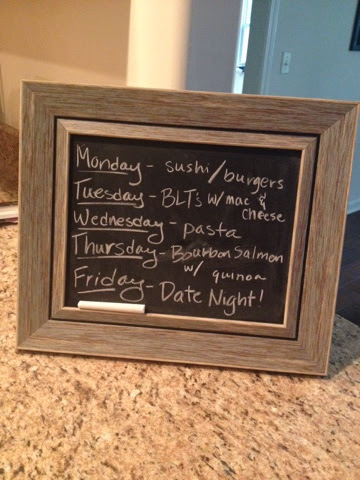 Monday - sushi/burgers
Tuesday - BLT's w/ mac &
cheese
Wednesday - pasta
Thursday - Bourbon Salmon
w/ quinoa
Friday - Date Night!